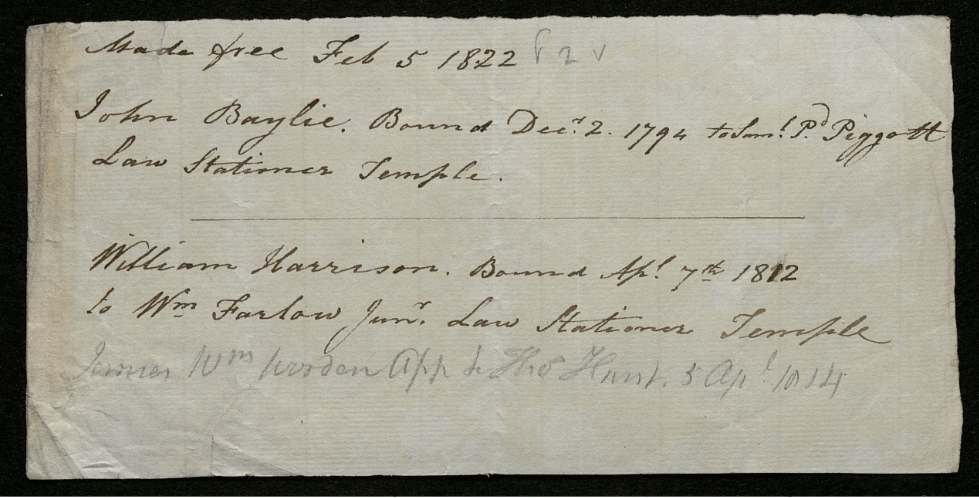 Made free Feb 5 1822
John Baylie. Bound Decr. 2. 1794 to Saml. Pd. Piggott
Law Stationer Temple.
William Harrison. Bound Apl. 7th 1812
to Wm Farlow Junr. Law Stationer Temple
James Wm Worden App to Thos Hunt. 5 Apl 1814